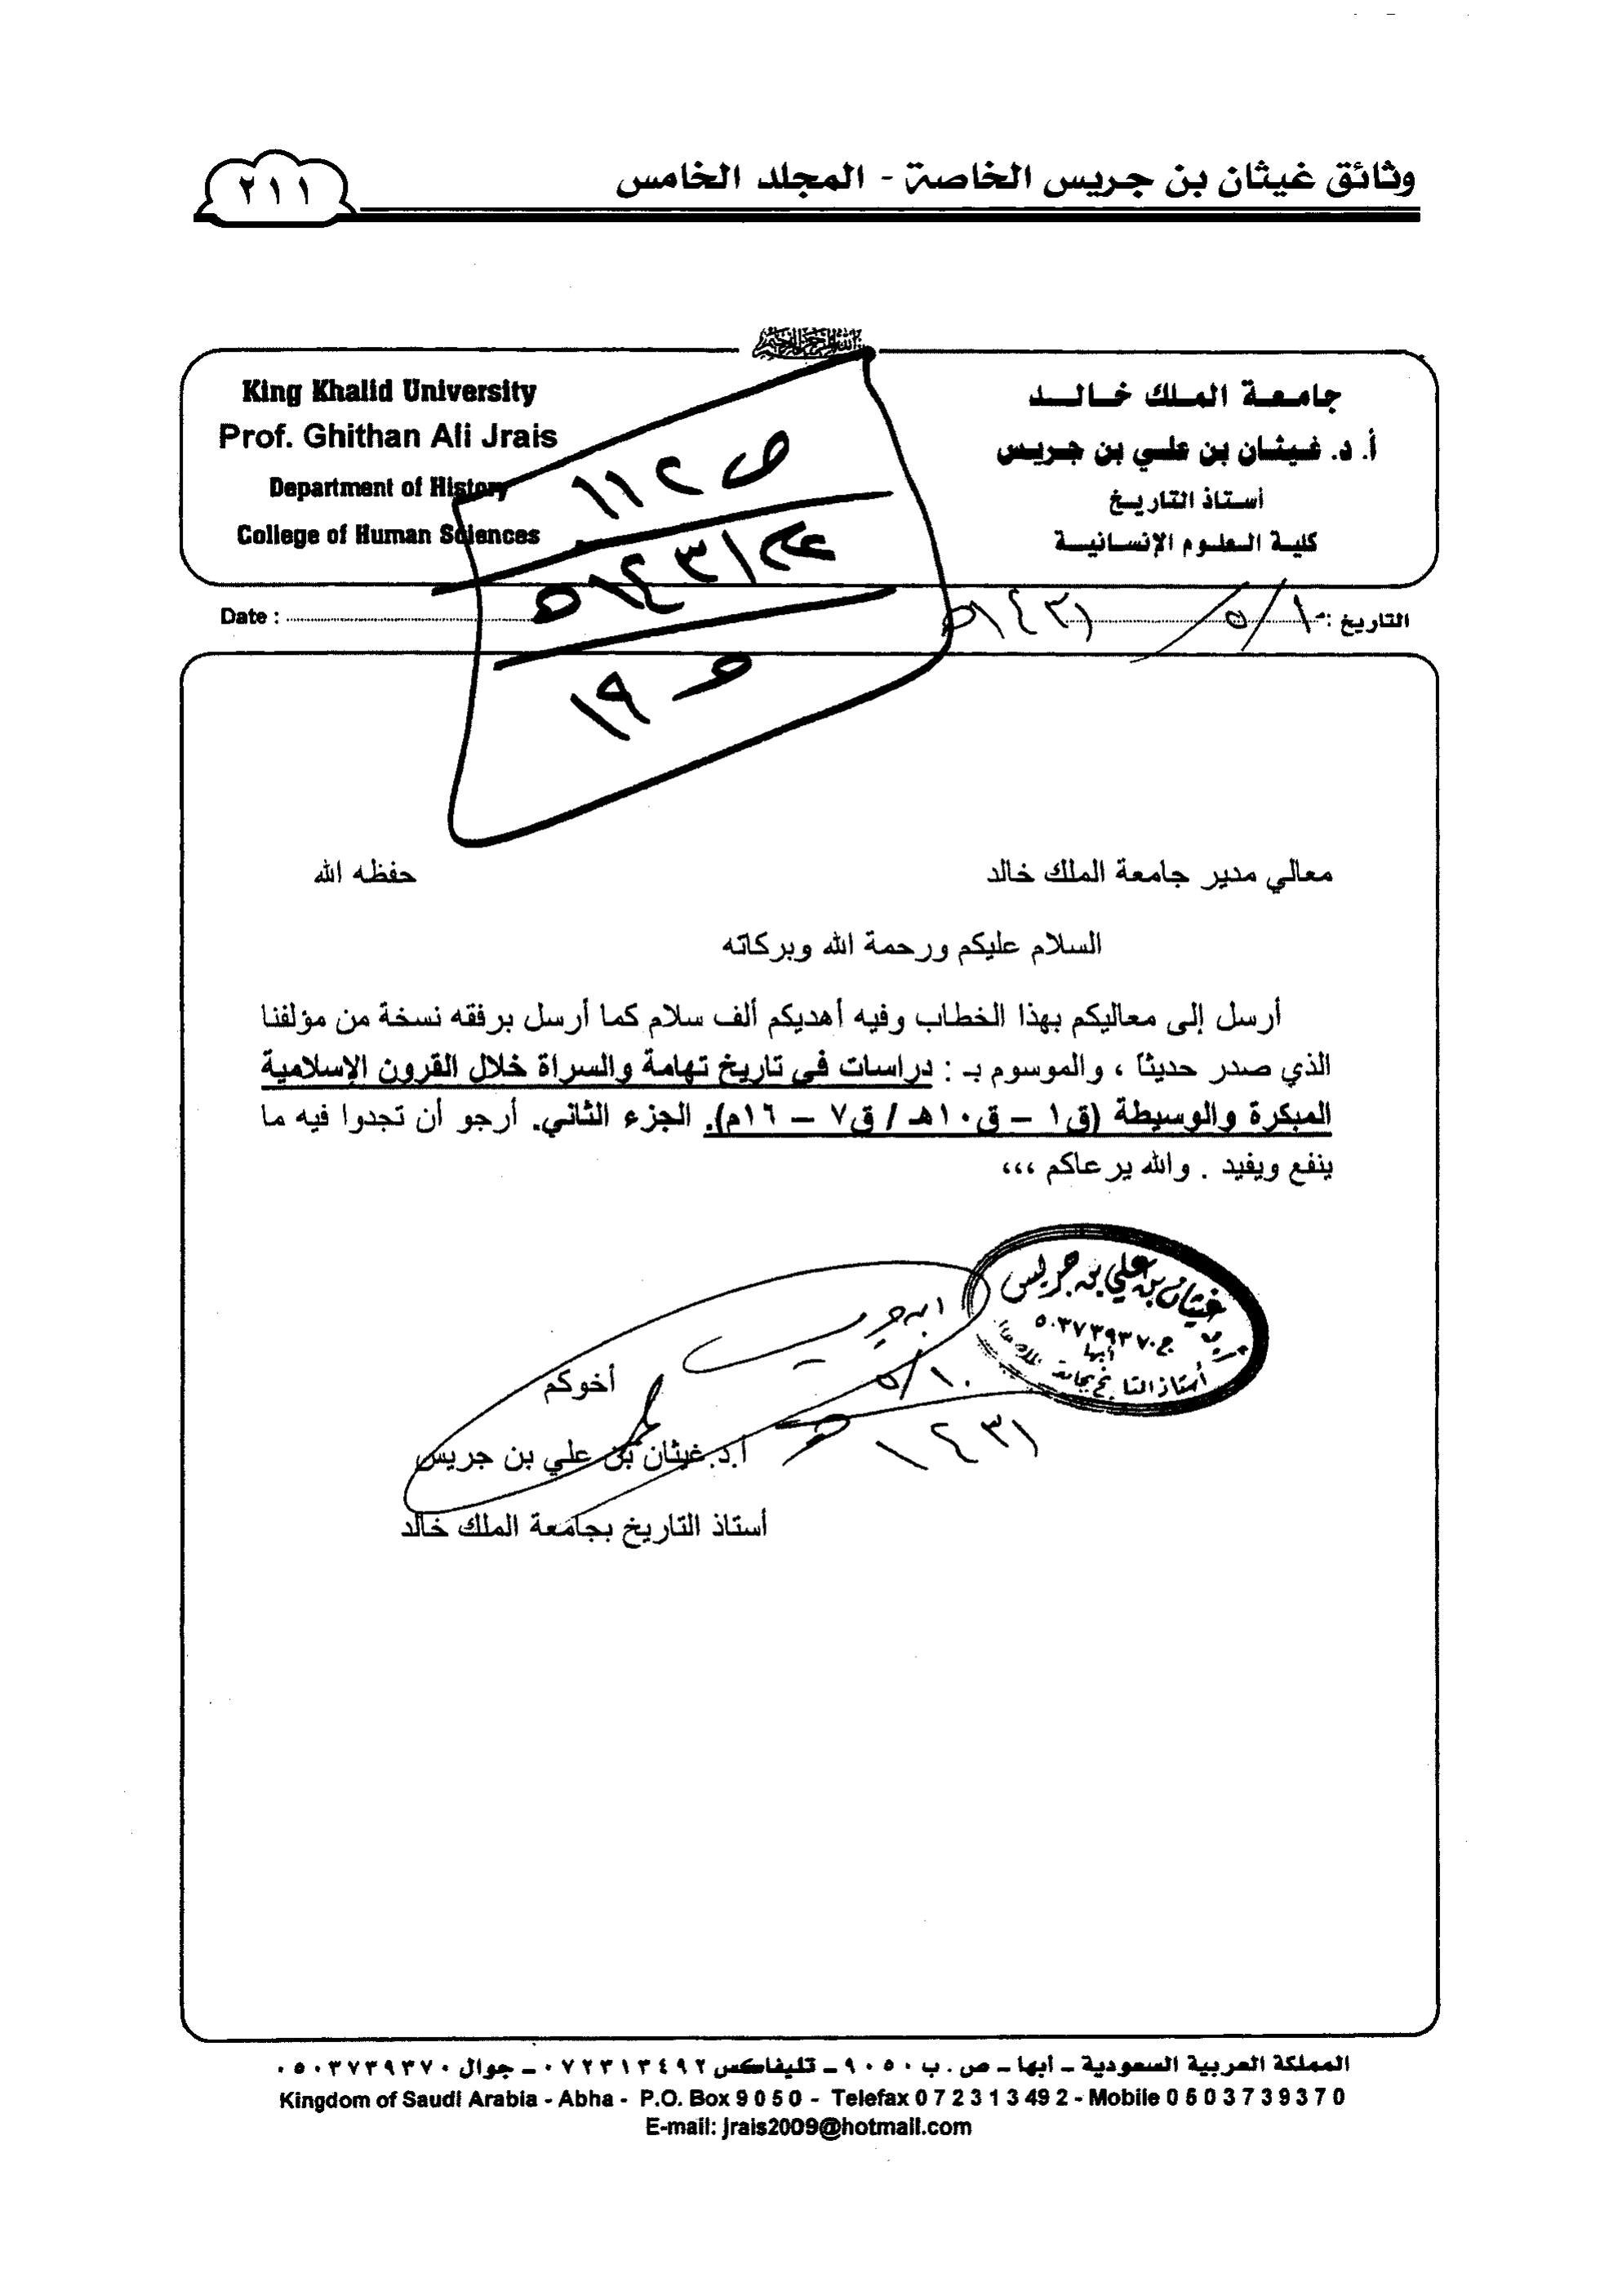 وثائق غيثان بن جريس الخاصة - المجلد الخامس
٢١١
جامعة الملك خالد
أ. د. غيثان بن علي بن جريس
أستاذ التاريخ
كلية العلوم الإنسانية
King Khalid University
Prof. Ghithan Ali Jrais
Department of History
College of Human Sciences
التاريخ : ١٠/٥/١٤٣١هـ
Date :
معالي مدير جامعة الملك خالد حفظه الله
السلام عليكم ورحمة الله وبركاته
أرسل إلى معاليكم بهذا الخطاب وفيه أهديكم ألف سلام كما أرسل برفقه نسخة من مؤلفنا
الذي صدر حديثاً ، والموسوم بـ : دراسات في تاريخ تهامة والسراة خلال القرون الإسلامية
المبكرة والوسيطة (ق١ – ق١٠هـ / ق٧ – ١٦م). الجزء الثاني. أرجو أن تجدوا فيه ما
ينفع ويفيد . والله يرعاكم ،،،
غيثان بن علي بن جريس
ج٠٥٠٣٧٣٩٣٧٠
أبها
ابن جريس
١٠/٥
١٤٣١هـ
أخوكم
أ.د.غيثان بن علي بن جريس
أستاذ التاريخ بجامعة الملك خالد
المملكة العربية السعودية – أبها – ص . ب ٩٠٥٠ – تليفاكس ٠٧٢٣١٣٤٩٢ – جوال ٠٥٠٣٧٣٩٣٧٠
Kingdom of Saudi Arabia - Abha - P.O. Box 9 0 5 0 - Telefax 0 7 2 3 1 3 49 2 - Mobile 0 5 0 3 7 3 9 3 7 0
E-mail: jrais2009@hotmail.com